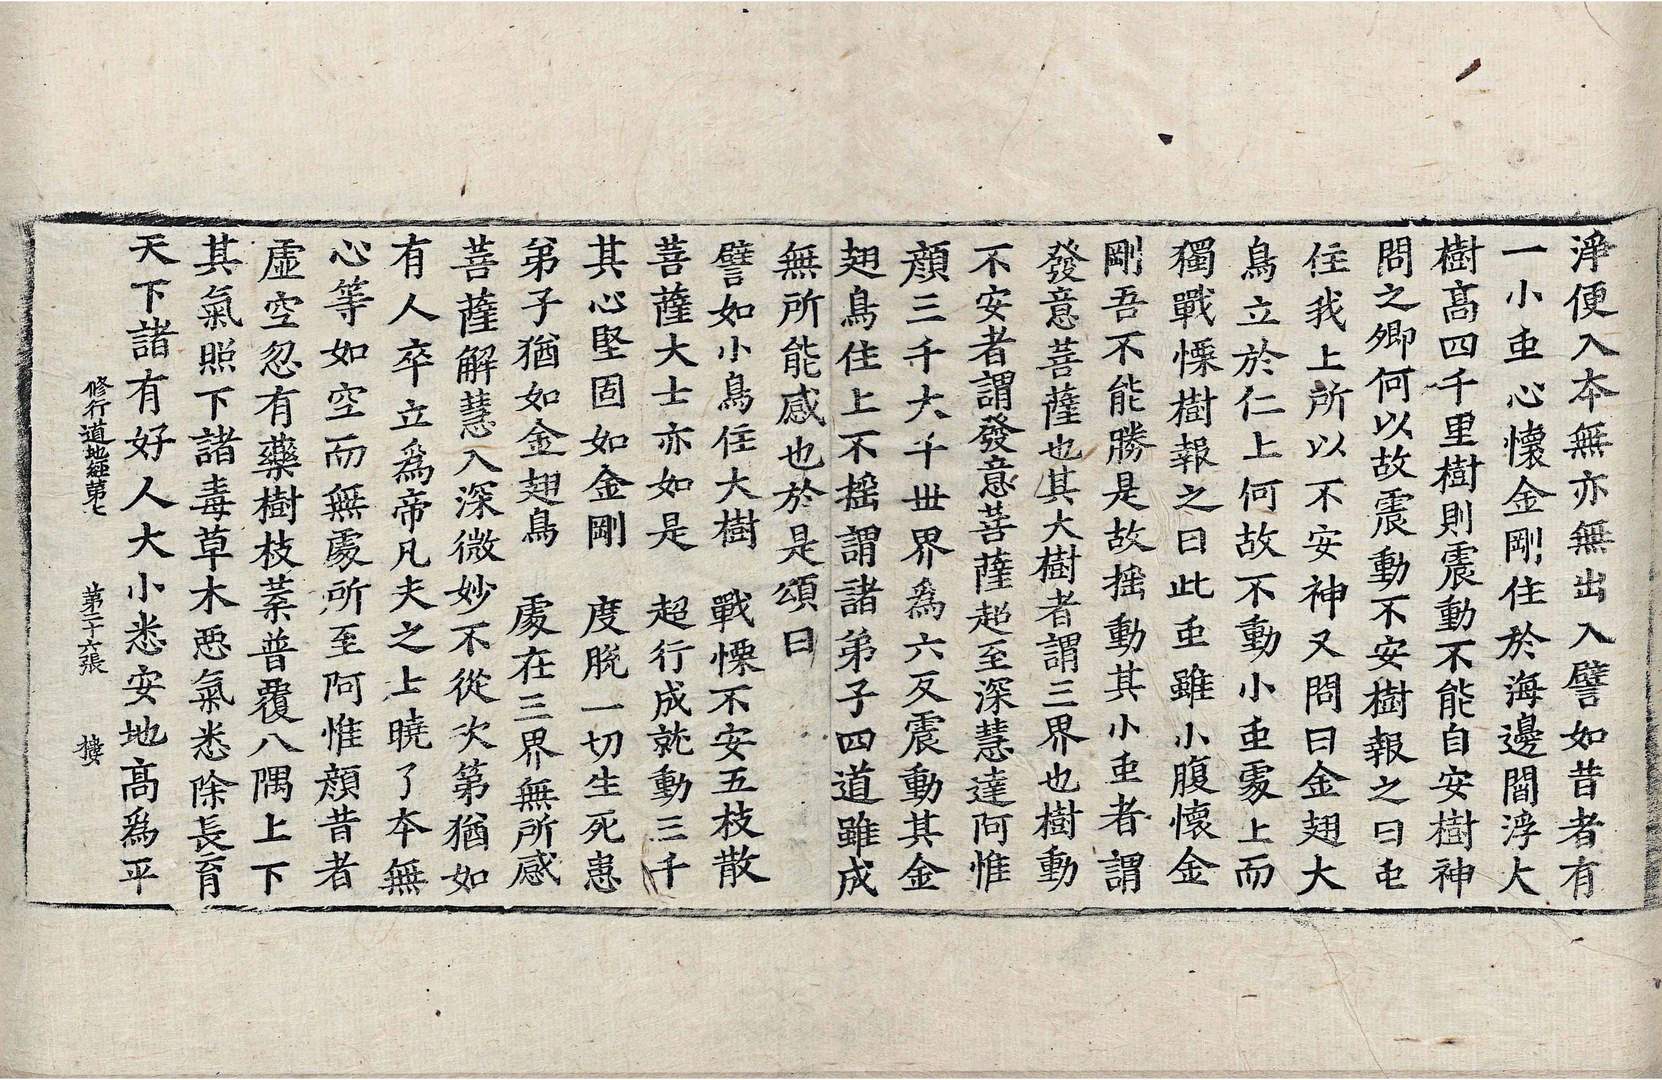 淨便入本無亦無出入譬如昔者有
一小䖝心懷金剛住於海邊閻浮大
樹髙四千里樹則震動不能自安樹神
問之卿何以故震動不安樹報之曰䖝
住我上所以不安神又問曰金翅大
鳥立於仁上何故不動小䖝處上而
獨戰慄樹報之曰此䖝雖小腹懷金
剛吾不能勝是故揺動其小䖝者謂
發意菩薩也其大樹者謂三界也樹動
不安者謂發意菩薩超至深慧達阿惟
顔三千大千世界為六反震動其金
翅鳥住上不揺謂諸弟子四道雖成
無所能感也於是頌曰
譬如小鳥住大樹　戰慄不安五枝散
菩薩大士亦如是　超行成就動三千
其心堅固如金剛　度脱一切生死患
弟子猶如金翅鳥　處在三界無所感
菩薩解慧入深微妙不從次第猶如
有人卒立爲帝凡夫之上曉了本無
心等如空而無處所至阿惟顔昔者
虚空忽有藥樹枝葉普覆八隅上下
其氣照下諸毒草木惡氣悉除長育
天下諸有好人大小悉安地髙爲平
修行道地經第七　第二十六張　樓